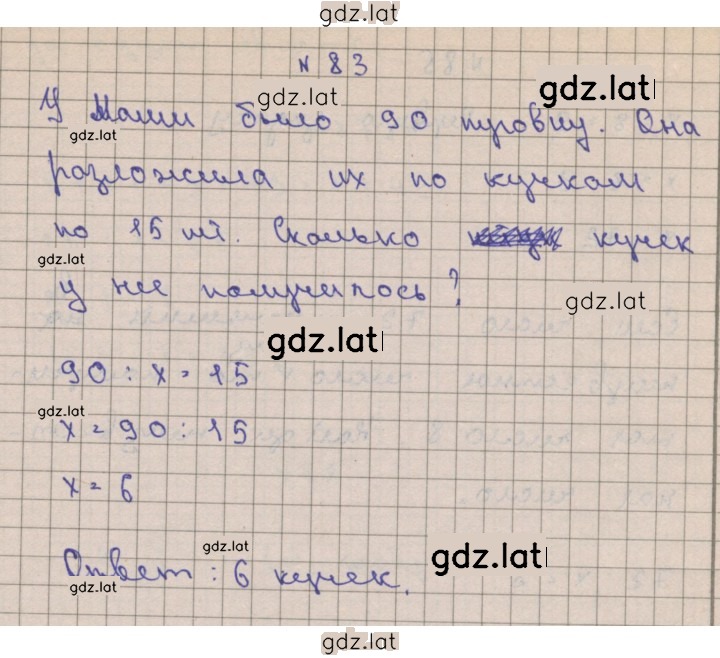 gdz.lat
N 83
gdz.lat gdz.lat
У Маши было 90 пуговиц. Она
gdz.lat
разложила их по кучкам
по 15 шт. Сколько кучек
gdz.lat
у нее получилось?
gdz.lat
gdz.lat
90 : x = 15
gdz.lat
x = 90 : 15
x = 6
gdz.lat
gdz.lat
Ответ : 6 кучек.
gdz.lat
gdz.lat